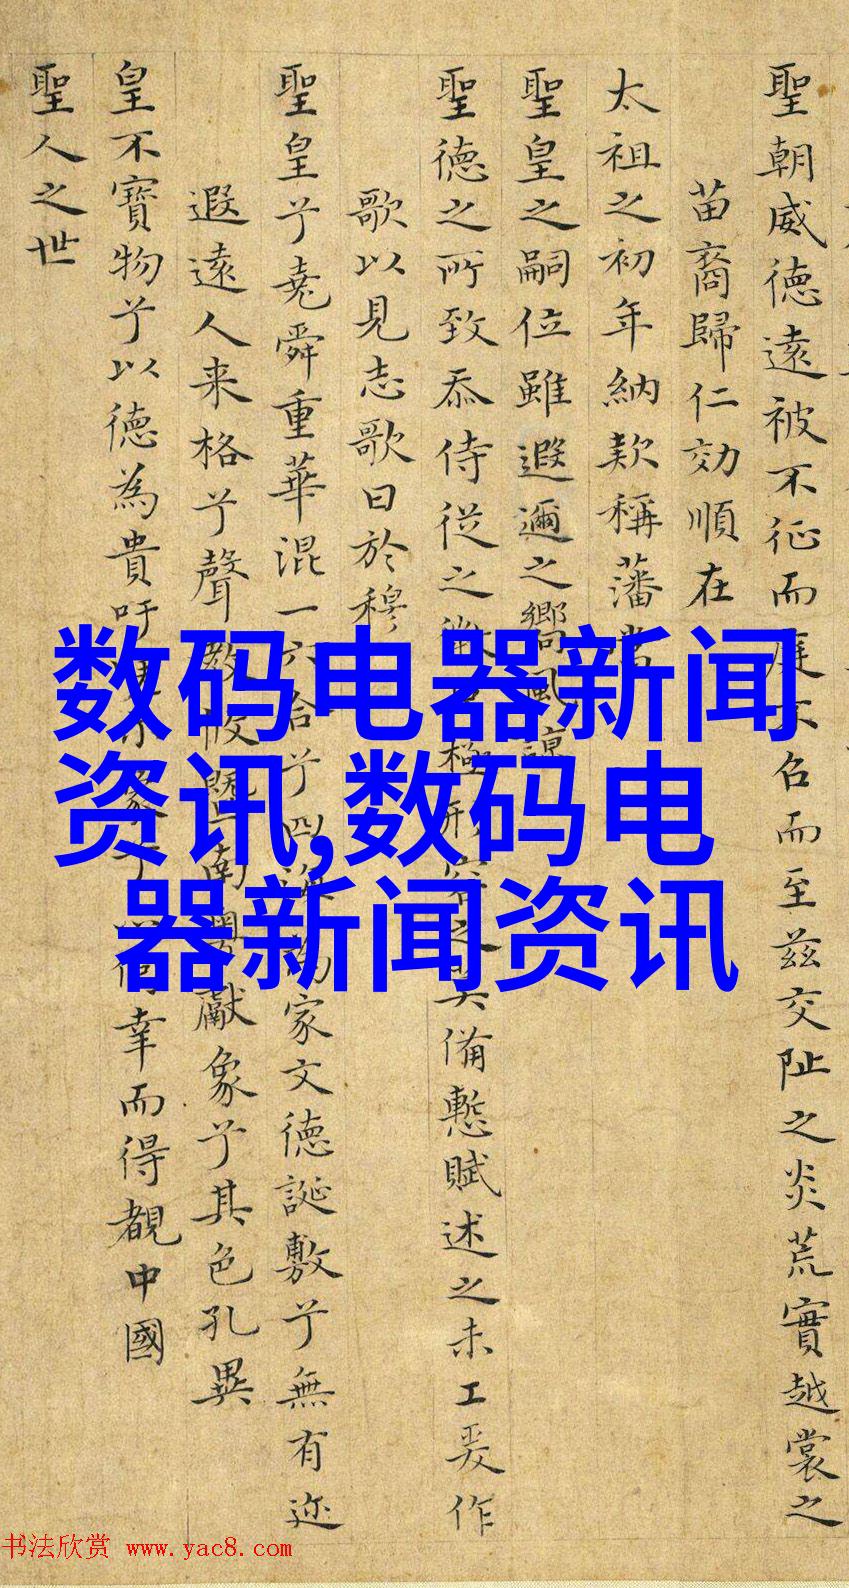 聖朝威德遠被不征而庭不召而至茲交阯之炎荒實越裳之
苗裔歸仁効順在
太祖之初年納款稱藩當
聖皇之嗣位雖遐邇之嚮風
聖德之所致忝侍從之極形容之美備慙賦述之未工爰作
歌以見志歌曰於穆
聖皇兮堯舜重華混一六合兮四海為家文德誕敷兮無有迩
遐遠人来格兮聲教攸暨南獻象兮其色孔異
皇不寶物兮以德為貴吁兮象兮幸而得覩中國
聖人之世
数码电器新闻
资讯,数码电
器新闻资讯
书法欣赏 www.yac8.com